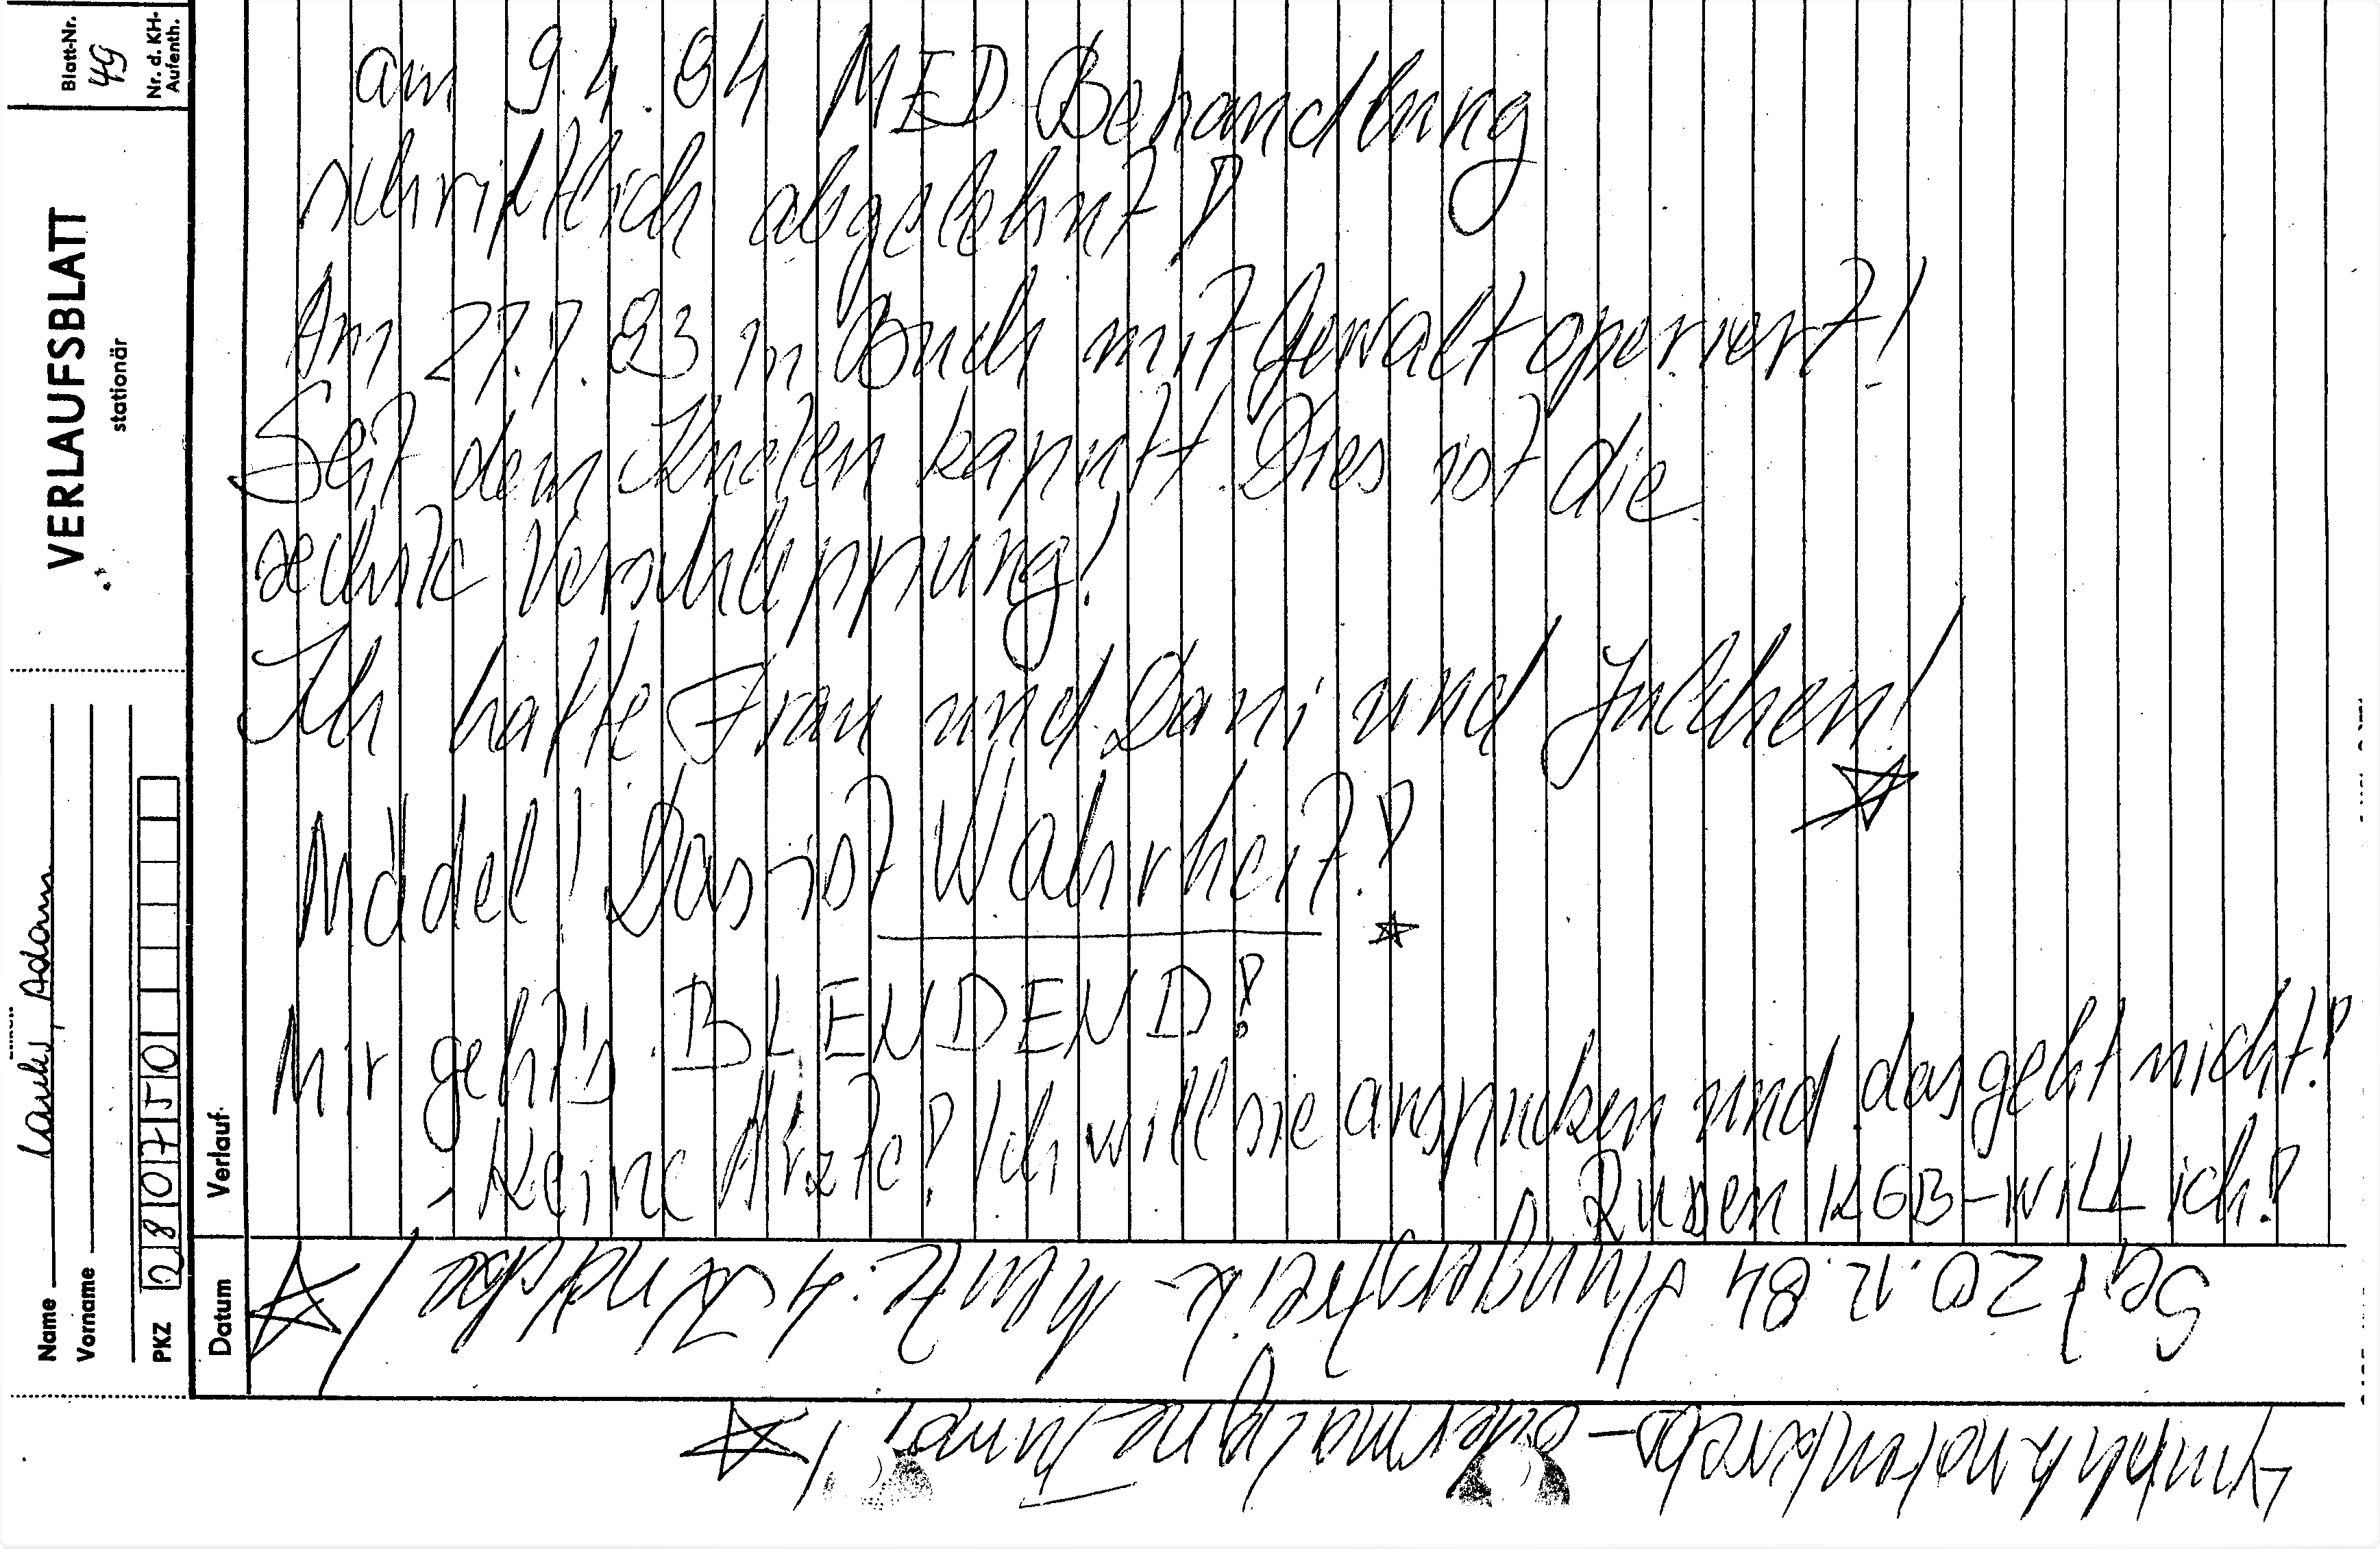 VERLAUFSBLATT
stationär
Blatt-Nr.
49
Nr. d. KH-
Aufenth.
Name Lauks, Adam
Vorname
PKZ 280750
Datum
Verlauf
am 9.4.84 MED Behandlung
schriftlich abgelehnt!
Am 27.7.83 in Buch mit Gewalt operiert!
Seit dem Knoten kaputt. Dies ist die
sechste Verschleppung!
Ich hatte Frau und Dani und Julchen!
Mädel! Das ist Wahrheit!
Mir geht's BLENDEND!
- Keine Ärzte! Ich will sie anspucken und das geht nicht!
Rusen KGB-WiLL ich!
Seit 20.12.84 Hungerstreik - heute: 4
Lymphknotenkrebs - oder maligne Tumor!